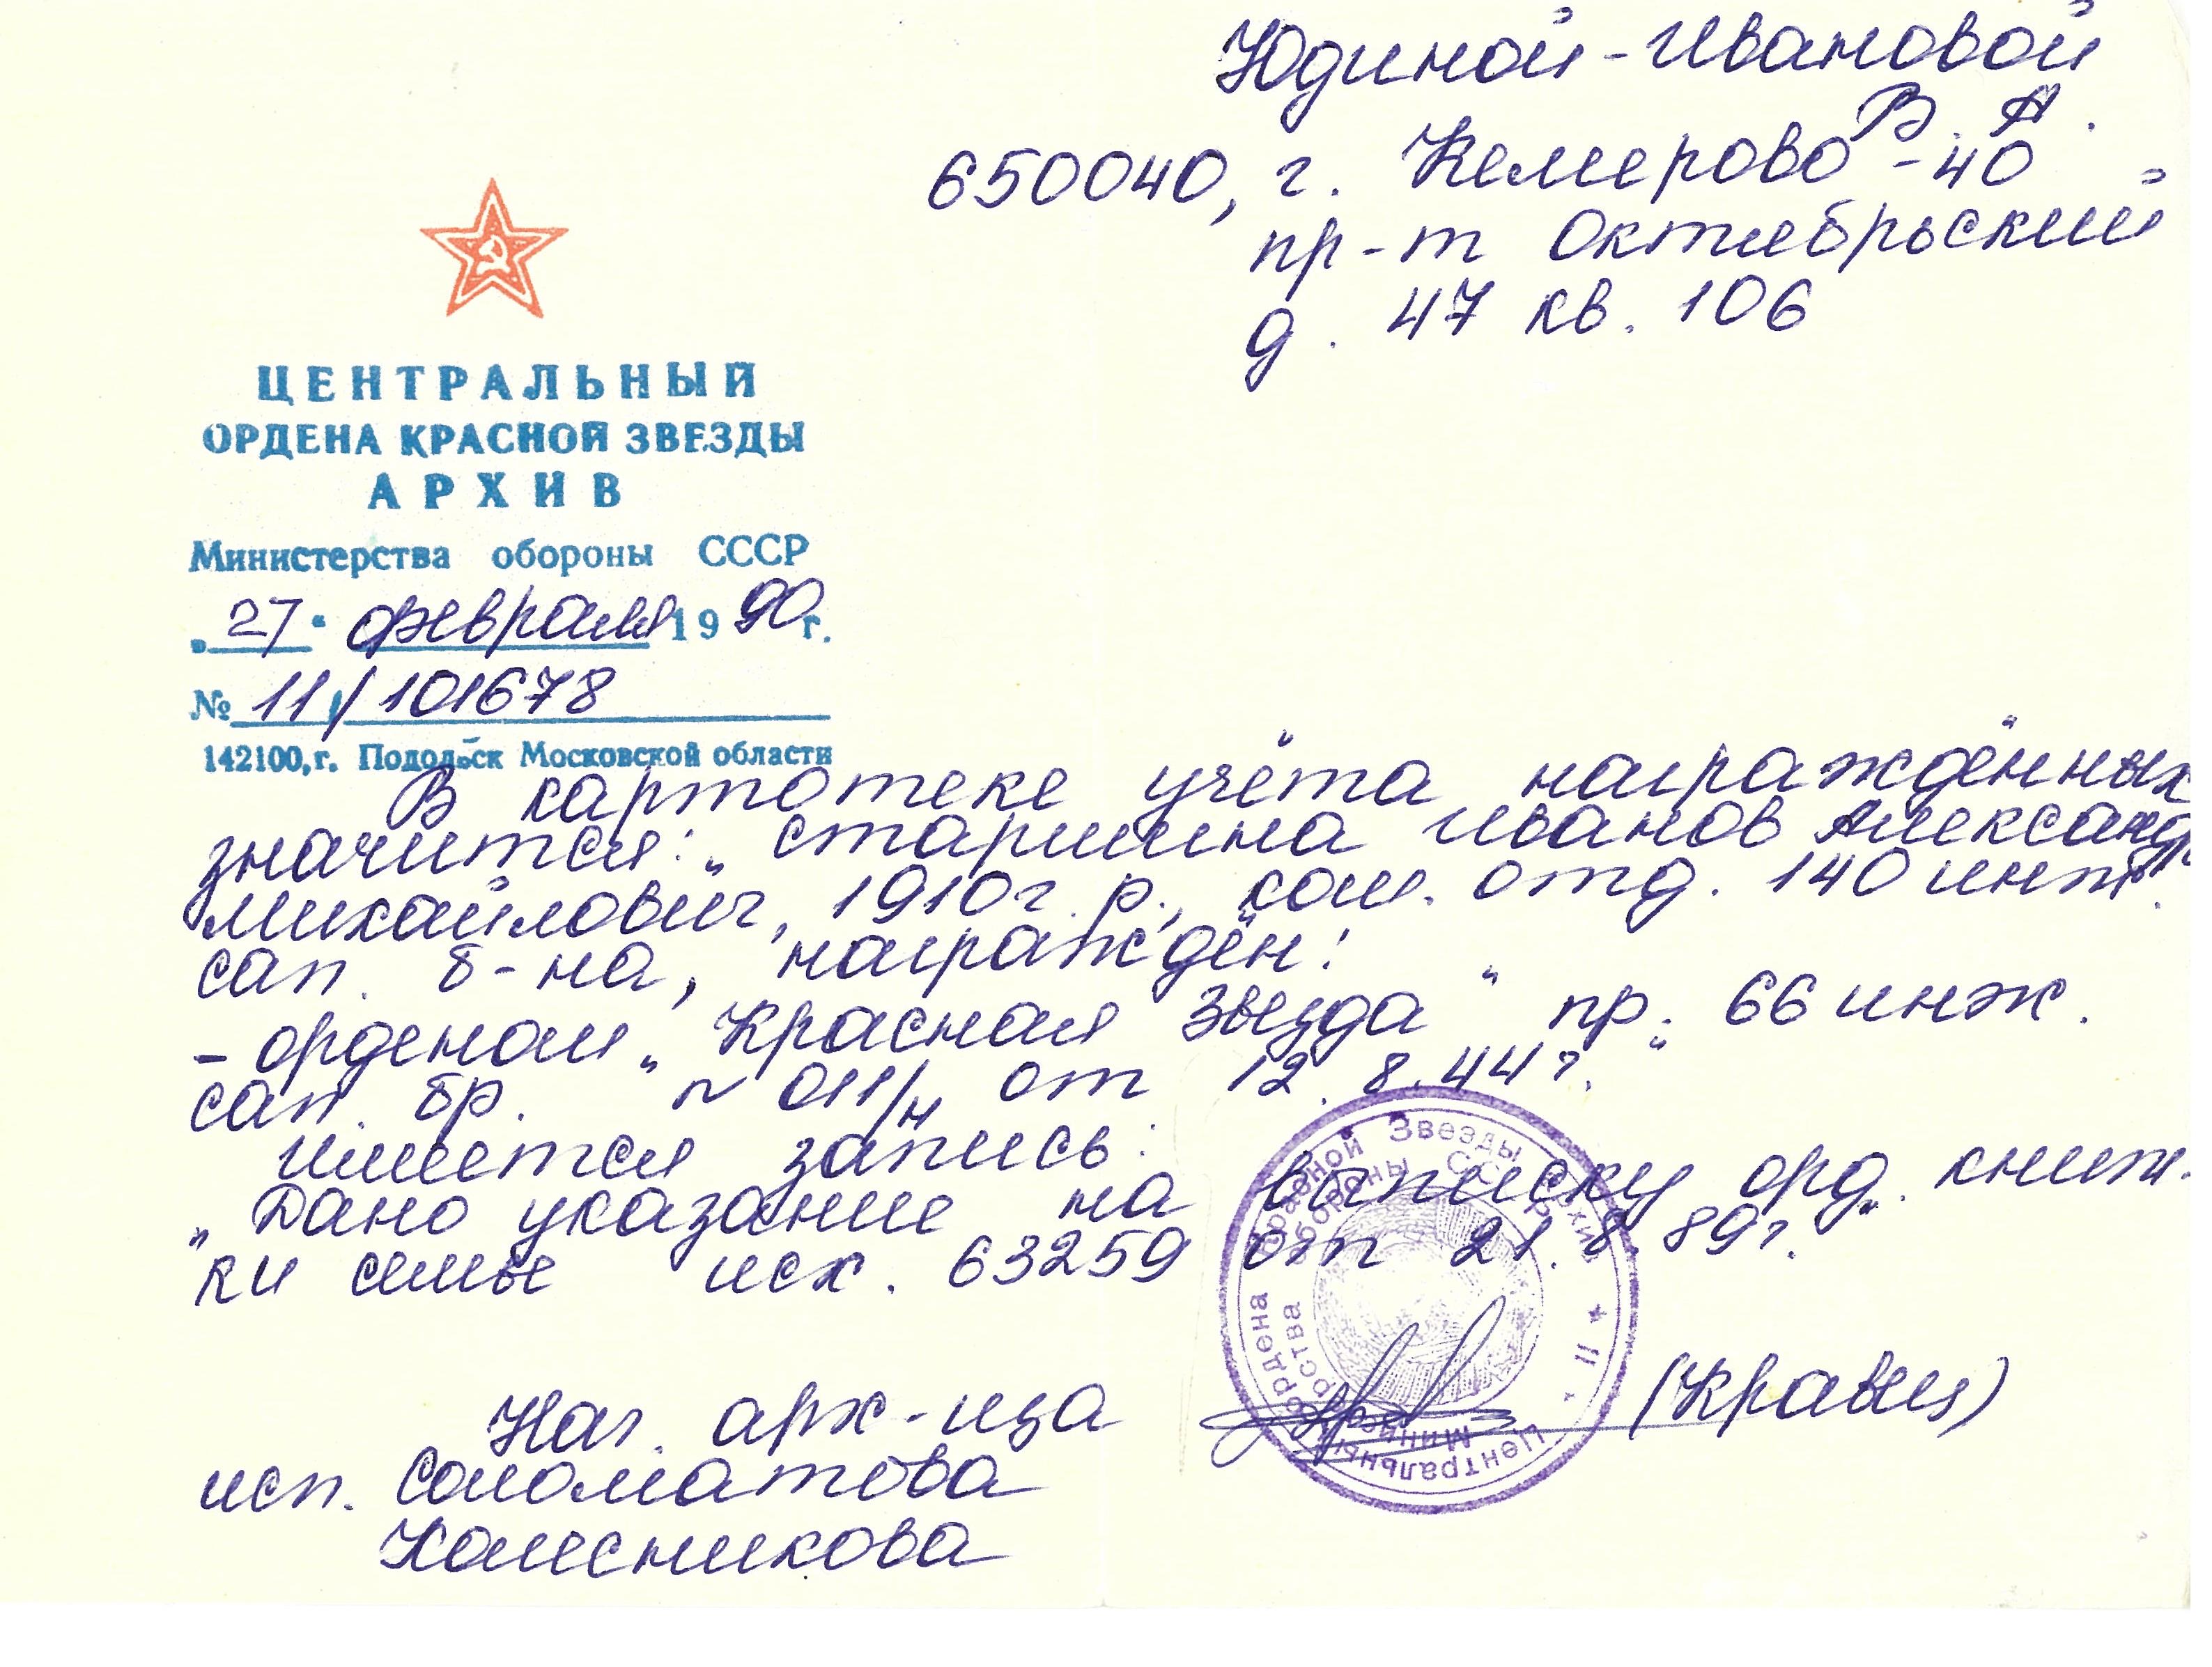 Юдиной-Ивановой
В. А.
650040, г. Кемерово-40
пр-т Октябрьский
д. 47 кв. 106
ЦЕНТРАЛЬНЫЙ
ОРДЕНА КРАСНОЙ ЗВЕЗДЫ
АРХИВ
Министерства обороны СССР
„27“ февраля 1990 г.
№ 11/101678
142100, г. Подольск Московской области
В картотеке учёта награждённых
значится: „старшина Иванов Александр
Михайлович, 1910 г. р., ком. отд. 140 инж.
сап. б-на, награждён:
- орденом „Красная Звезда“ пр. 66 инж.
сап. бр. № 011/н от 12.8.44 г.“
Имеется запись:
„Дано указание на выписку орд. книж-
ки семье исх. 63259 от 21.8.89 г.“
Нач. арх-ща (Кравец)
исп. Соломатова
Колесникова
Центральный ордена Красной Звезды архив
Министерства обороны СССР
★ 11